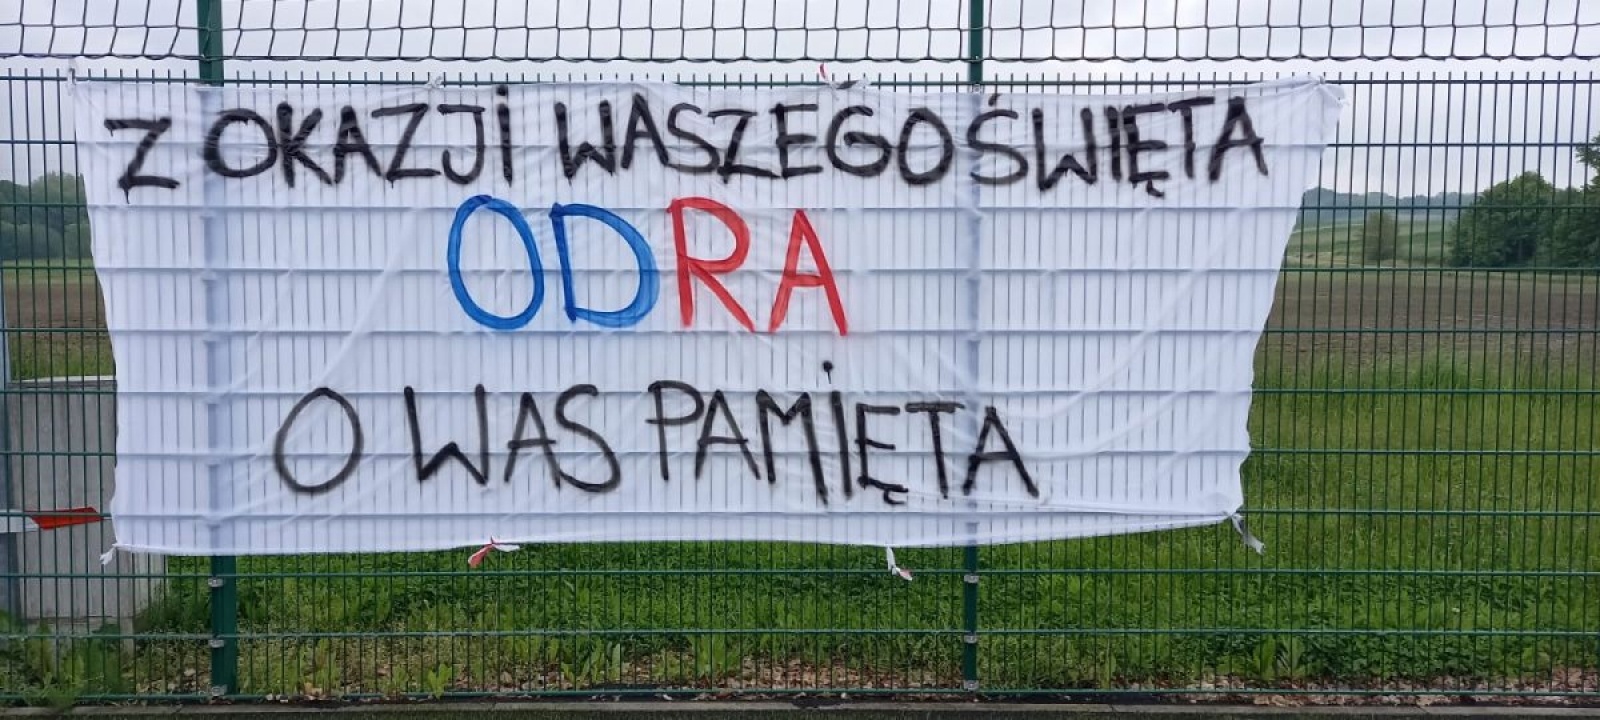 Z OKAZJI WASZEGO ŚWIĘTA
ODRA
O WAS PAMIĘTA